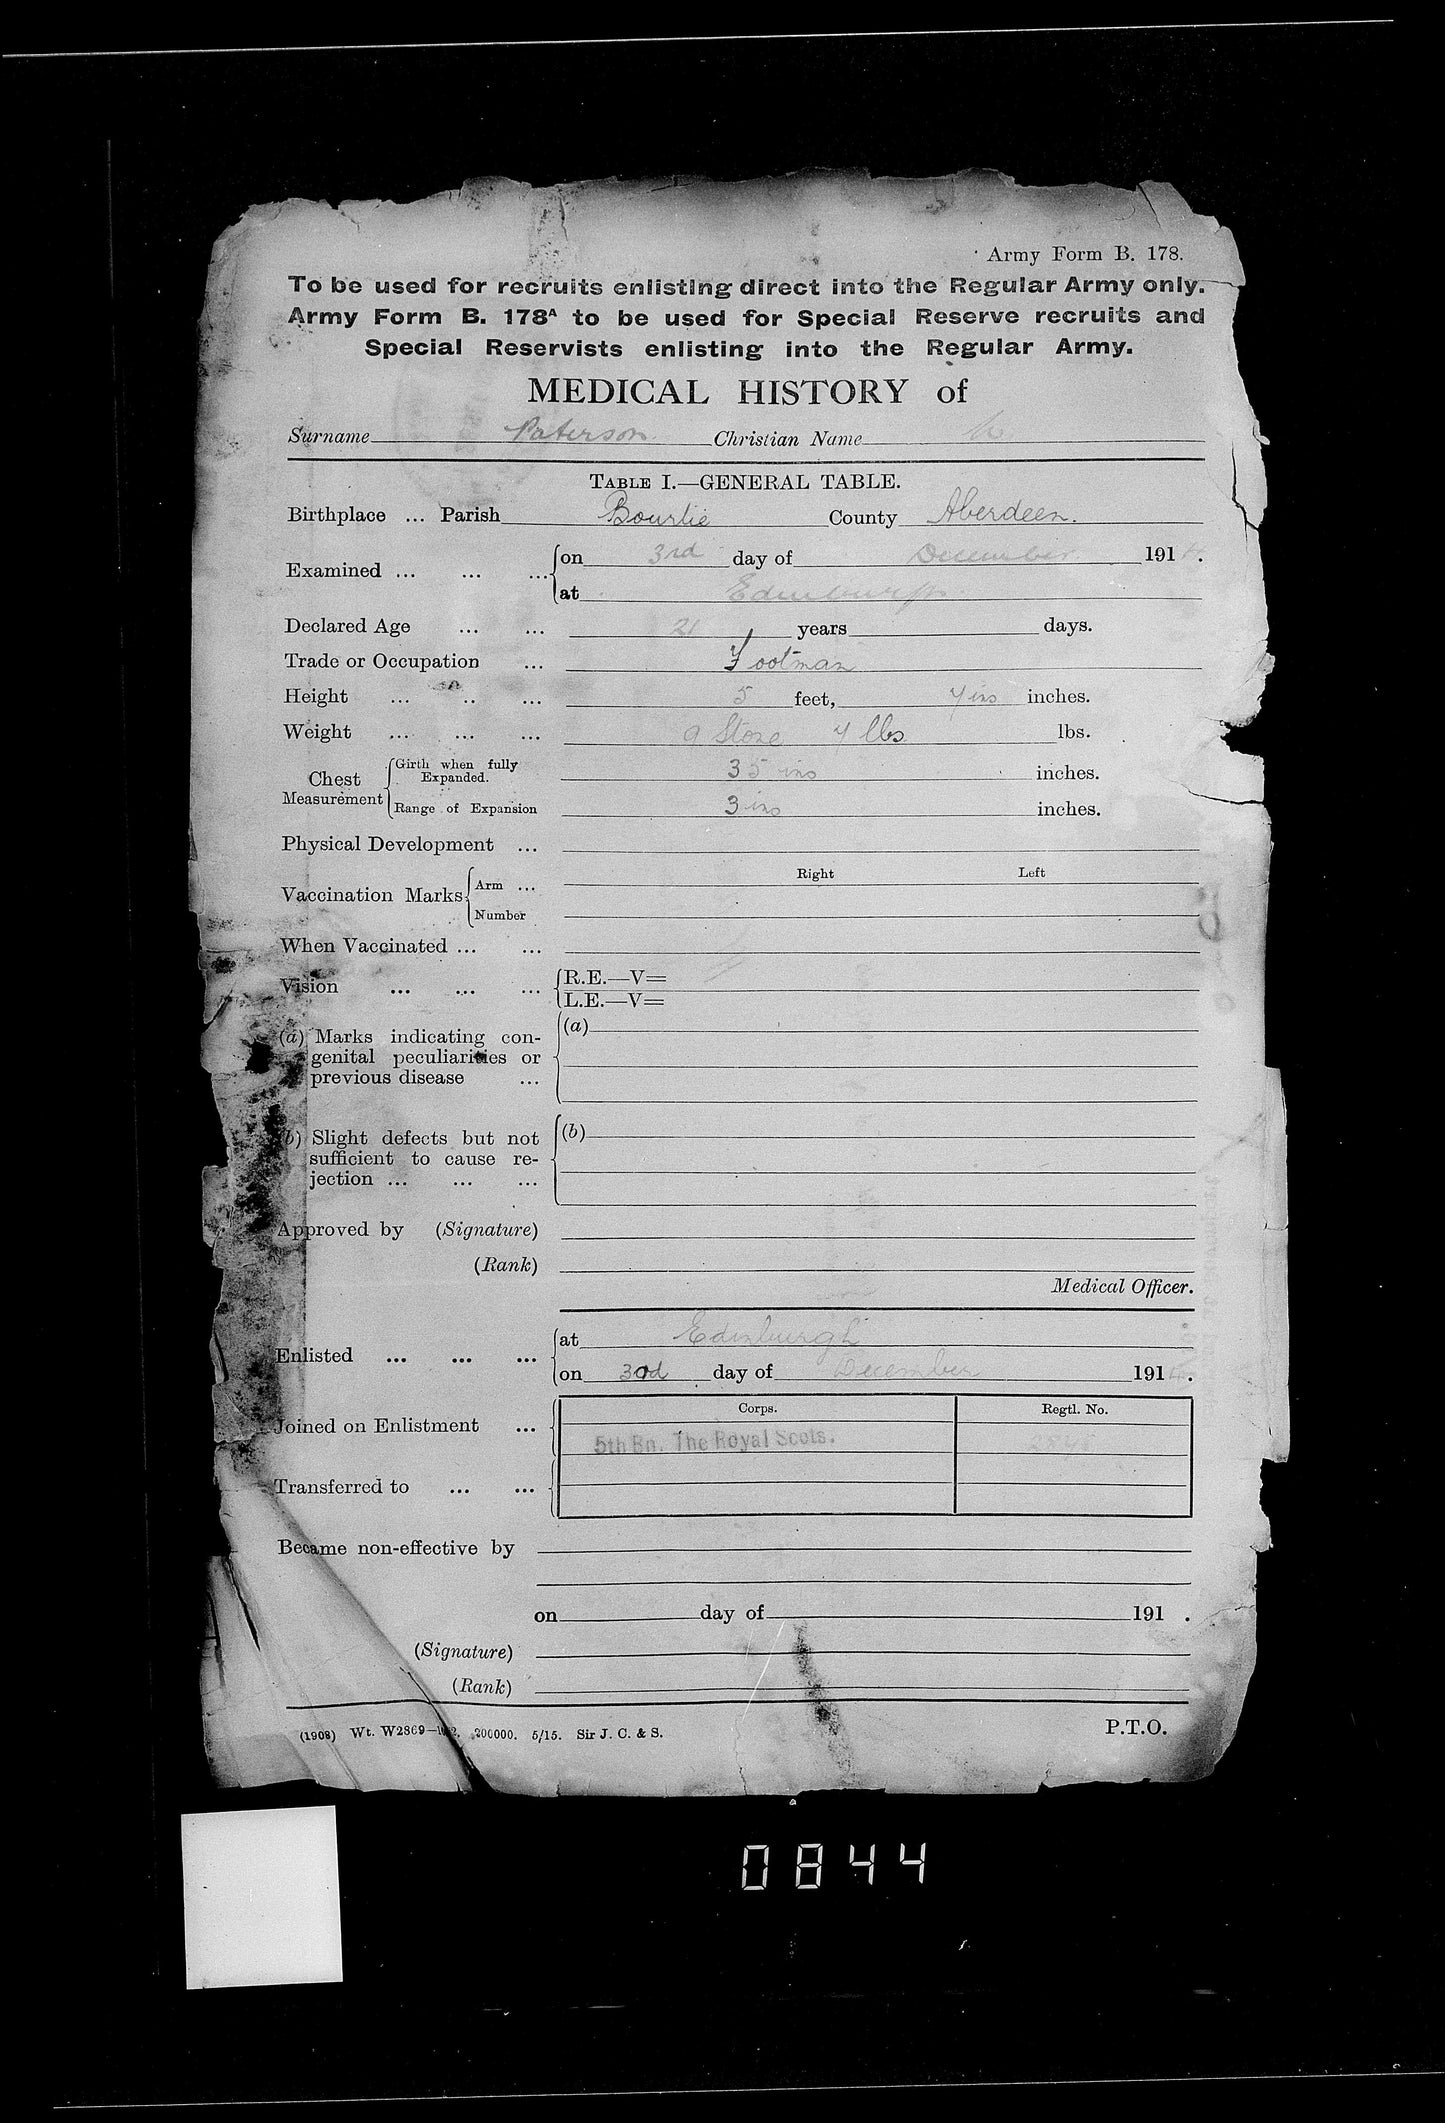 Army Form B. 178.
To be used for recruits enlisting direct into the Regular Army only.
Army Form B. 178A to be used for Special Reserve recruits and
Special Reservists enlisting into the Regular Army.
MEDICAL HISTORY of
Surname Paterson Christian Name
TABLE I.—GENERAL TABLE.
Birthplace ... Parish Bourtie County Aberdeen.
Examined ... ... ... on 3rd day of December 1914.
at Edinburgh
Declared Age ... ... 21 years days.
Trade or Occupation ... Footman
Height ... .. ... 5 feet, 7 ins inches.
Weight ... ... ... 9 Stone 7 lbs lbs.
Chest Measurement Girth when fully Expanded. 35 ins inches.
Range of Expansion 3 ins inches.
Physical Development ...
Right Left
Vaccination Marks Arm ...
Number
When Vaccinated ... ...
Vision ... ... ... R.E.—V=
L.E.—V=
(a) Marks indicating con- (a)
genital peculiarities or
previous disease ...
(b) Slight defects but not (b)
sufficient to cause re-
jection ... ... ...
Approved by (Signature)
(Rank)
Medical Officer.
Enlisted ... ... ... at Edinburgh
on 3rd day of December 191 .
Corps. Regtl. No.
Joined on Enlistment ... 5th Bn. The Royal Scots.
Transferred to ... ...
Became non-effective by
on day of 191 .
(Signature)
(Rank)
(1908) Wt. W2869— 200000. 5/15. Sir J. C. & S. P.T.O.
0844